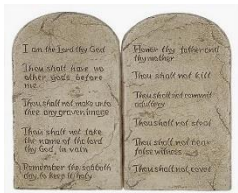 I am the Lord thy God
Thou shall have no
other gods before
me
Thou shall not make unto
thee any graven image
Thou shall not take
the name of the lord
thy God in vain
Remember the sabbath
day, to keep it holy
Honor thy father and
thy mother
Thou shall not kill
Thou shall not commit
adultery
Thou shall not steal
Thou shall not bear
false witness
Thou shall not covet